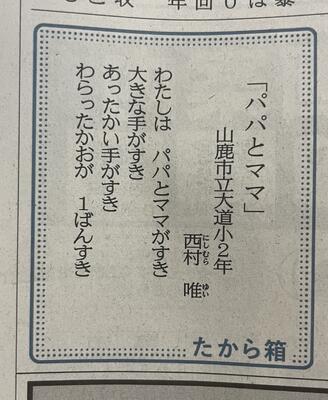 「パパとママ」
山鹿市立大道小2年
西村 唯
にしむら ゆい
わたしは パパとママがすき
大きな手がすき
あったかい手がすき
わらったかおが 1ばんすき
たから箱